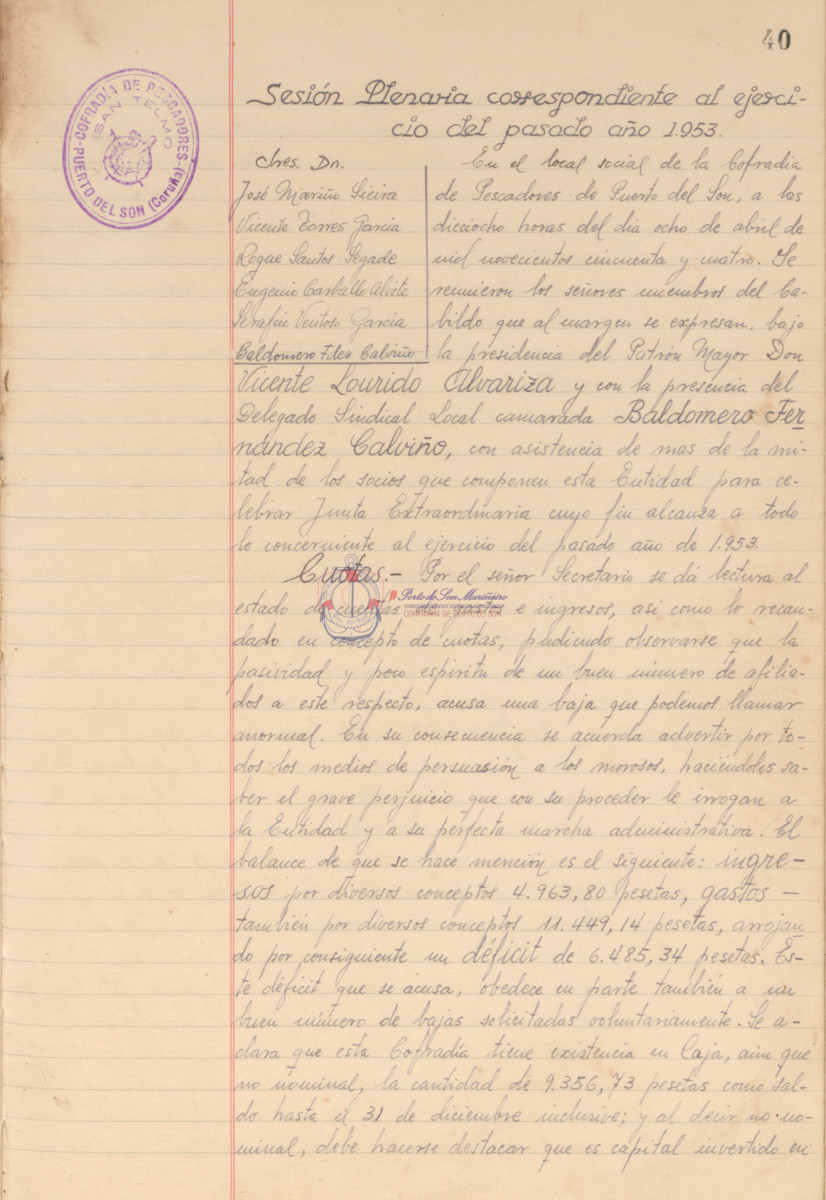 40
COFRADÍA DE PESCADORES
SAN TELMO
PUERTO DEL SON (Coruña)
Sesión Plenaria correspondiente al ejerci-
cio del pasado año 1.953.
Sres. Dn.
José Mariño Sieira
Vicente Torres García
Roque Santos Segade
Eugenio Carballo Alvite
Serafín Ventoso García
Baldomero Fdez Calviño
En el local social de la Cofradia
de Pescadores de Puerto del Son, a las
dieciocho horas del dia ocho de abril de
mil novecientos cincuenta y cuatro. Se
reunieron los señores miembros del Ca-
bildo que al margen se expresan, bajo
la presidencia del Patrón Mayor Don
Vicente Lourido Alvariza y con la presencia del
Delegado Sindical Local camarada Baldomero Fer
nández Calviño, con asistencia de mas de la mi-
tad de los socios que componen esta Entidad para ce-
lebrar Junta Extraordinaria cuyo fin alcanza a todo
lo concerniente al ejercicio del pasado año de 1.953.
Cuotas.- Por el señor Secretario se dá lectura al
estado de cuentas de gastos e ingresos, asi como lo recau-
dado en concepto de cuotas, pudiendo observarse que la
pasividad y poco espiritu de un buen número de afilia-
dos a este respecto, acusa una baja que podemos llamar
anormal. En su consecuencia se acuerda advertir por to-
dos los medios de persuasión a los morosos, haciéndoles sa-
ber el grave perjuicio que con su proceder le irrogan a
la Entidad y a su perfecta marcha administrativa. El
balance de que se hace mención es el siguiente: ingre-
sos por diversos conceptos 4.963,80 pesetas, gastos —
también por diversos conceptos 11.449,14 pesetas, arrojan
do por consiguiente un déficit de 6.485,34 pesetas. Es-
te déficit que se acusa, obedece en parte también a un
buen número de bajas solicitadas voluntariamente. Se a-
clara que esta Cofradía tiene existencia en Caja, aún que
no nominal, la cantidad de 9.356,73 pesetas como sal-
do hasta el 31 de diciembre inclusive; y al decir no no-
minal, debe hacerse destacar que es capital invertido en
Porto do Son Mariñeiro
COFRADÍA DE PORTO DO SON